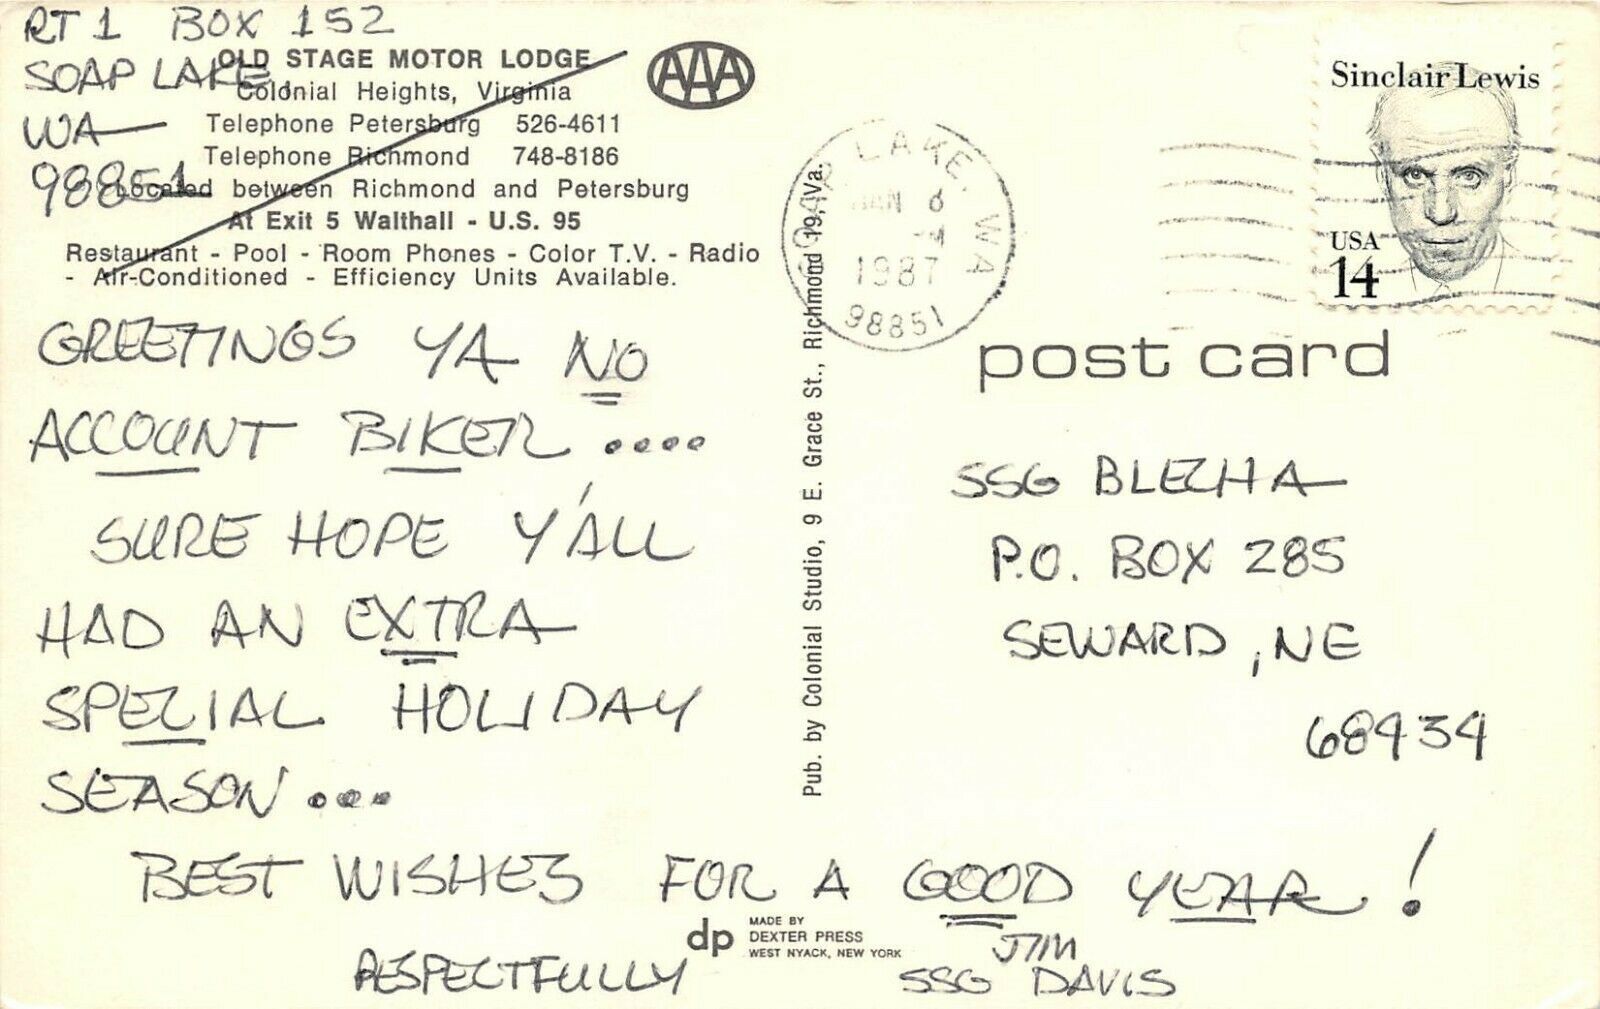 RT 1 BOX 152
SOAP LAKE,
WA
98851
OLD STAGE MOTOR LODGE
Colonial Heights, Virginia
Telephone Petersburg 526-4611
Telephone Richmond 748-8186
Located between Richmond and Petersburg
At Exit 5 Walthall - U.S. 95
Restaurant - Pool - Room Phones - Color T.V. - Radio
- Air-Conditioned - Efficiency Units Available.
AAA
GREETINGS YA NO
ACCOUNT BIKER ....
SURE HOPE Y'ALL
HAD AN EXTRA
SPECIAL HOLIDAY
SEASON ...
BEST WISHES FOR A GOOD YEAR!
RESPECTFULLY
JIM
SSG DAVIS
dp
MADE BY
DEXTER PRESS
WEST NYACK, NEW YORK
Pub. by Colonial Studio, 9 E. Grace St., Richmond 19, Va.
SOAP LAKE, WA
JAN 6
1987
98851
Sinclair Lewis
USA
14
post card
SSG BLECHA
P.O. BOX 285
SEWARD, NE
68434